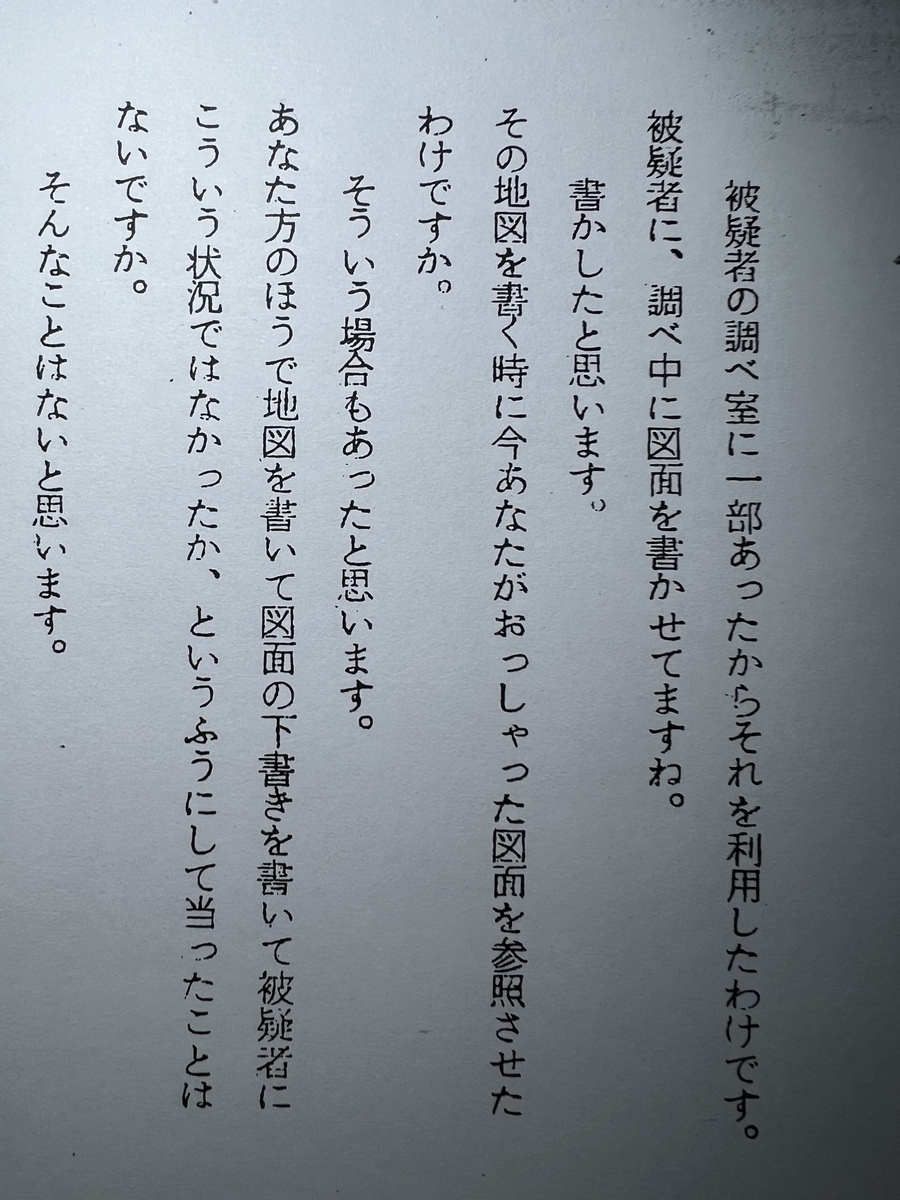 被疑者の調べ室に一部あったからそれを利用したわけです。
被疑者に、調べ中に図面を書かせてますね。
書かしたと思います。
その地図を書く時に今あなたがおっしゃった図面を参照させた
わけですか。
そういう場合もあったと思います。
あなた方のほうで地図を書いて図面の下書きを書いて被疑者に
こういう状況ではなかったか、というふうにして当ったことは
ないですか。
そんなことはないと思います。